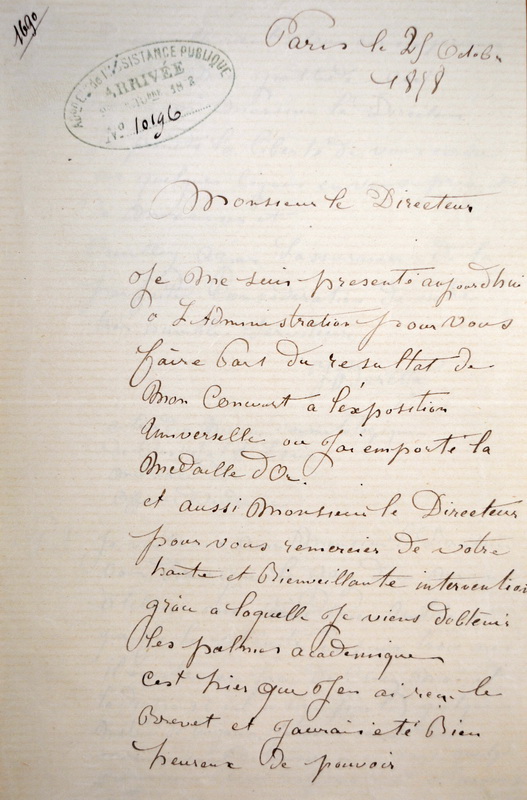 1690
ASSISTANCE PUBLIQUE
ARRIVÉE
No 10196
Paris le 25 Octobre
1878
Monsieur le Directeur
Je me suis presenté aujourdhui
a L'Administration pour Vous
faire Part du resultat de
Mon Concourt a l'exposition
Universelle ou J'ai emporté la
Medaille d'Or.
et aussi Monsieur le Directeur
pour vous remercier de votre
haute et Bienveillante intervention
grâce a laquelle Je viens d'obtenir
les palmes academique
c'est hier que J'en ai reçu le
Brevet et J'aurais été Bien
heureux de pouvoir